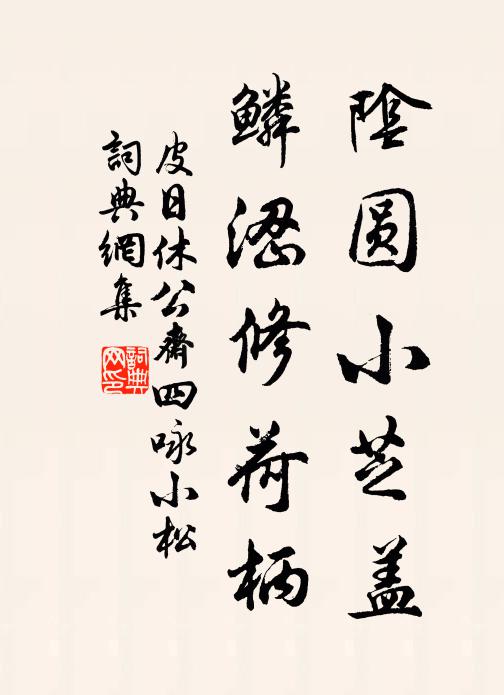 陰圓小芝盖
鱗澀修荷柄
皮日休公齋四咏小松
詞典網集
詞典網印